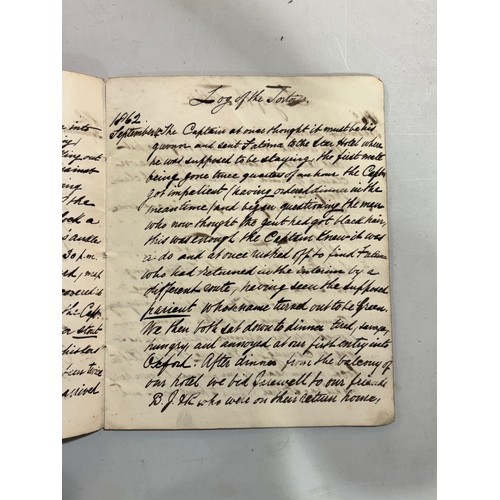 Log of the Tortoise.
1862.
September The Captain at once thought it must be his
guvnor and sent Fatima to the Star Hotel where
he was supposed to be staying, the first mate
being gone three quarters of an hour the Captn
got impatient (having ordered dinner in the
meantime) and began questioning the man
who now thought the gent had got black hair,
this was enough, the Captain knew it was
a do and at once rushed off to find Fatima
who had returned in the interim by a
different route, having seen the supposed
parient whose name turned out to be Green.
We then both sat down to dinner tired, savage,
hungry, and annoyed at our first entry into
Oxford. After dinner from the balcony of
our hotel we bid farewell to our friends
B. J. & K who were on their return home,
into
out
against
the
a
30 p.m.
covered in
the Captn
a stout
twice
arrived